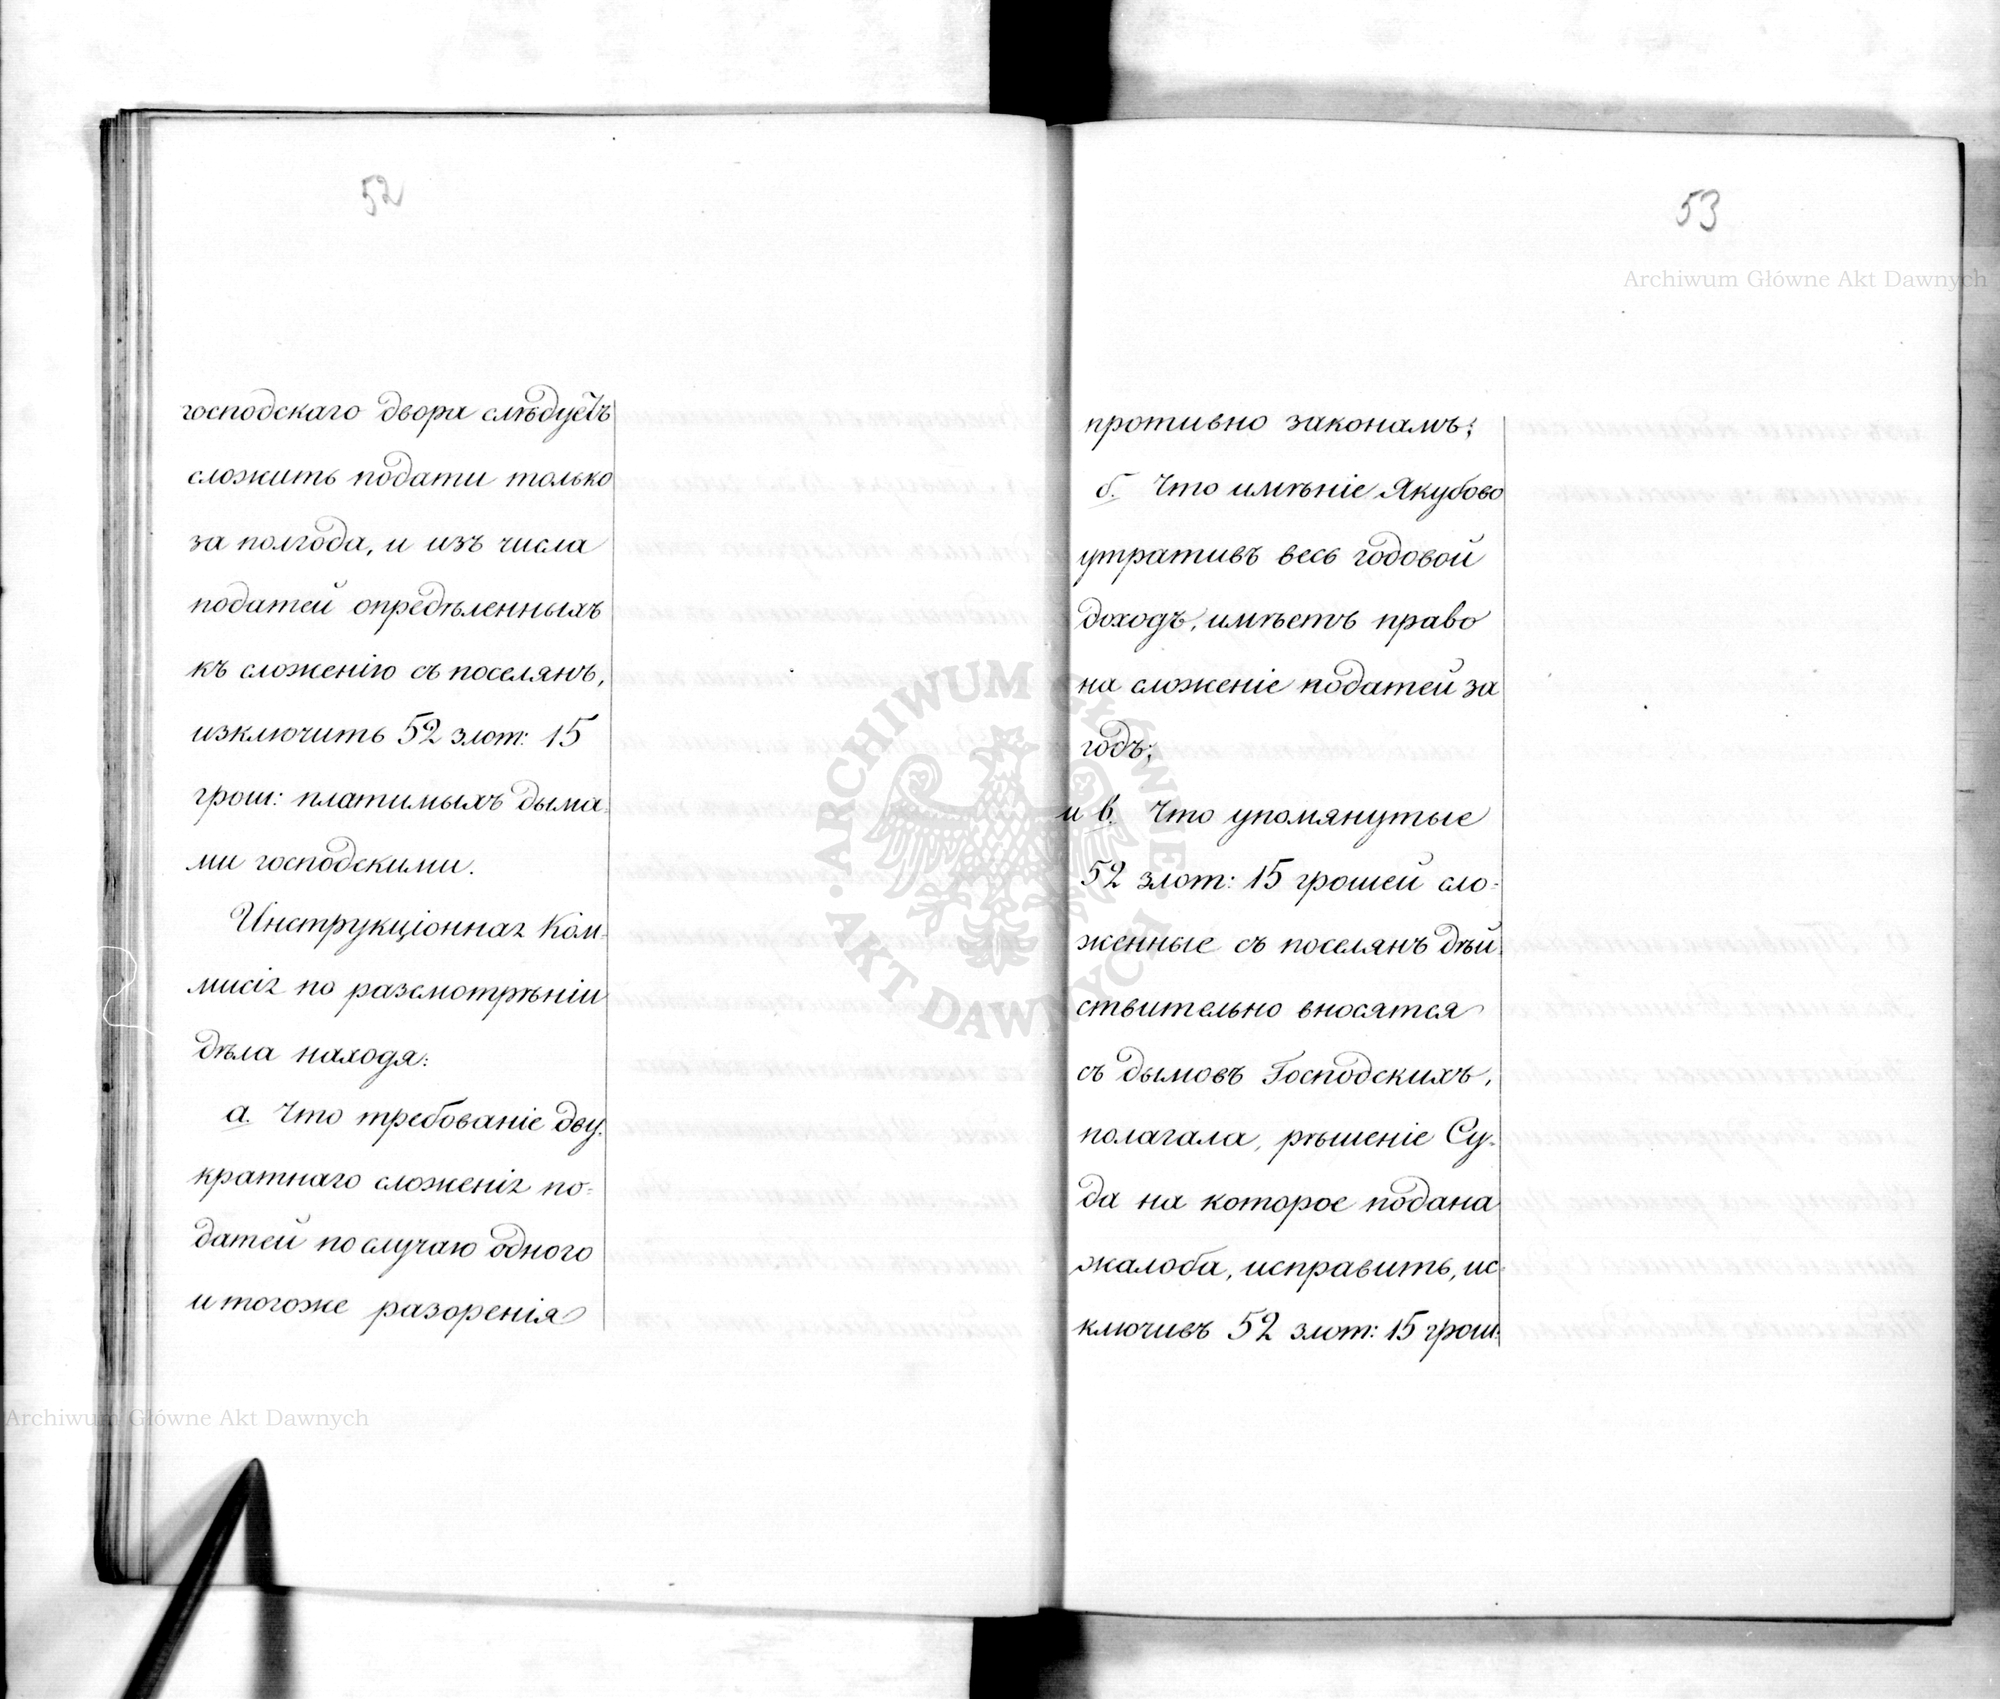 52
господскаго двора слѣдуетъ
сложить подати только
за полгода, и изъ числа
податей опредѣленныхъ
къ сложенію съ поселянъ,
изключить 52 злот: 15
грош: платимыхъ дыма-
ми господскими.
Инструкціонная Ком-
мисія по разсмотрѣніи
дѣла находя:
а. Что требованіе дву-
кратнаго сложенія по-
датей по случаю одного
и тогоже разоренія
53
Archiwum Główne Akt Dawnych
противно законамъ;
б. Что имѣніе Якубово
утративъ весь годовой
доходъ, имѣетъ право
на сложеніе податей за
годъ;
и в. Что упомянутые
52 злот: 15 грошей сло-
женные съ поселянъ дѣй-
ствительно вносятся
съ дымовъ Господскихъ,
полагала, рѣшеніе Су-
да на которое подана
жалоба, исправить, ис-
ключивъ 52 злот: 15 грош:
ARCHIWUM GŁÓWNE AKT DAWNYCH
Archiwum Główne Akt Dawnych